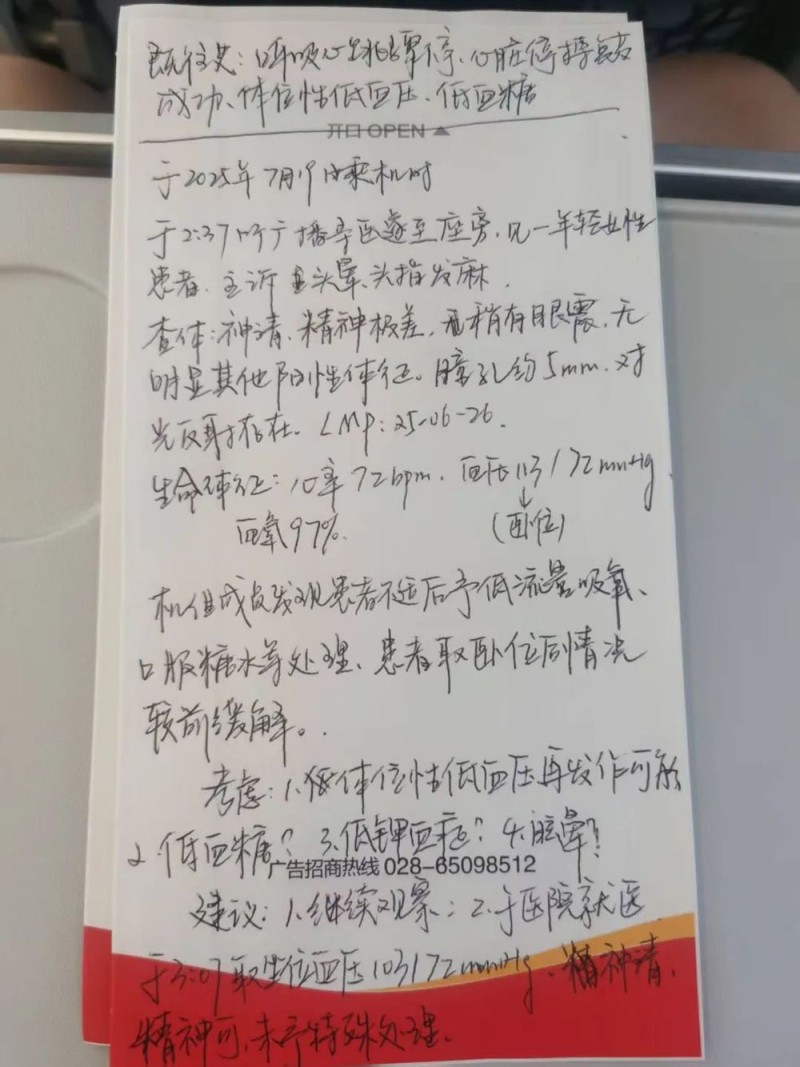 既往史：呼吸心跳骤停、心脏停搏复苏
成功、体位性低血压、低血糖
开口 OPEN
于2025年7月19日乘机时
于2:37听广播寻医遂至座旁，见一年轻女性
患者，主诉头晕、头指发麻，
查体：神清，精神极差，稍有眼震，无
明显其他阳性体征。瞳孔约5mm，对
光反射存在。LMP：25-06-26.
生命体征：心率72bpm，血压113/72mmHg
血氧97%.
(卧位)
机组成员发现患者不适后予低流量吸氧、
口服糖水等处理，患者取卧位后情况
较前缓解。
考虑：1.体位性低血压再发作可能
2.低血糖？3.低钾血症？4.眩晕？
广告招商热线 028-65098512
建议：1.继续观察；2.于医院就医
于3:07取坐位血压103/72mmHg，精神清，
精神可，未予特殊处理。